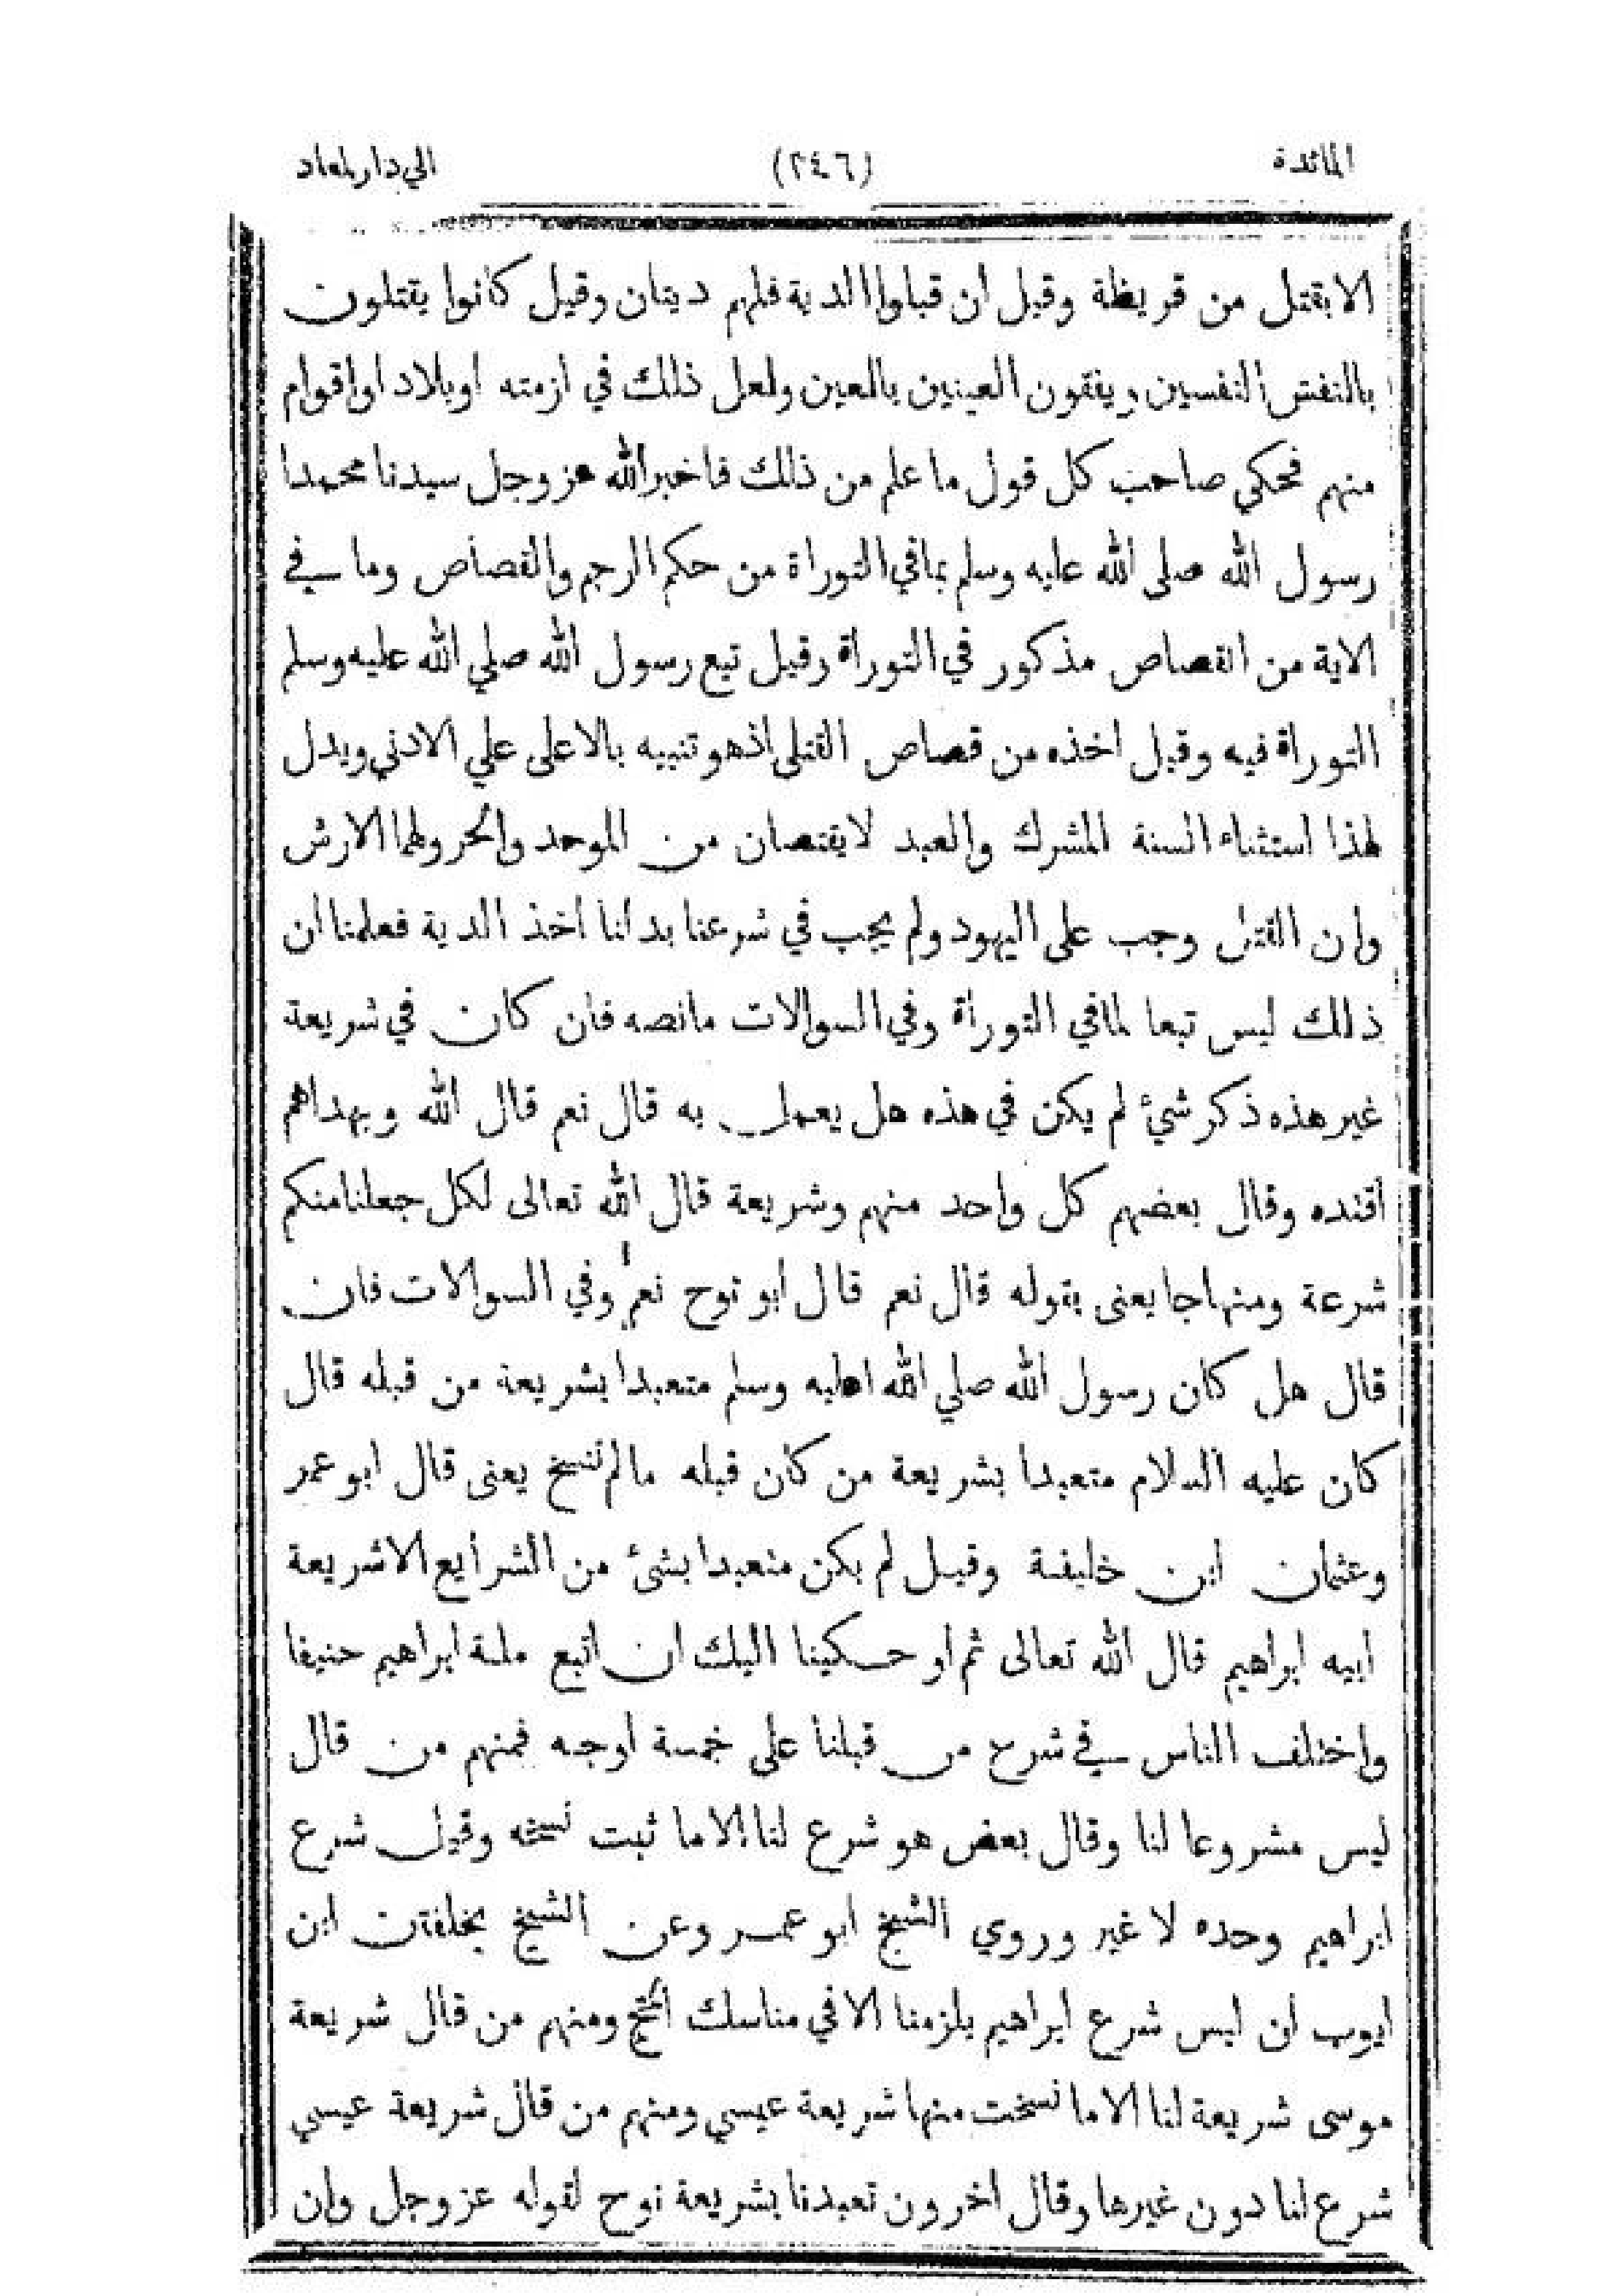 المائدة (٢٤٦) الي دار المعاد
الا بقتل من قريظة وقيل ان قبلوا الدية فلهم ديتان وقيل كانوا يقتلون
بالنفس النفسين ويفقون العينين بالعين ولعل ذلك في ازمنه او بلاد او اقوام
منهم فحكى صاحب كل قول ما علم من ذلك فاخبر الله عز وجل سيدنا محمدا
رسول الله صلى الله عليه وسلم بما في التوراة من حكم الرجم والقصاص وما في
الاية من القصاص مذكور في التوراة وقيل تبع رسول الله صلي الله عليه وسلم
التوراة فيه وقيل اخذه من قصاص القتلى اذ هو تنبيه بالاعلى علي الادني ويدل
لهذا استثناء السنة المشرك والعبد لا يقتصان من الموحد والحر ولهما الارش
وان القتل وجب على اليهود ولم يجب في شرعنا بدانا اخذ الدية فعلمنا ان
ذلك ليس تبعا لما في التوراة وفي السوالات ما نصه فان كان في شريعة
غير هذه ذكر شيئ لم يكن في هذه هل يعمل به قال نعم قال الله وبهداهم
اقتده وقال بعضهم كل واحد منهم وشريعة قال الله تعالى لكل جعلنا منكم
شرعة ومنهاجا يعنى بقوله قال نعم قال ابو نوح نعم وفي السوالات فان
قال هل كان رسول الله صلي الله اعليه وسلم متعبدا بشريعة من قبله قال
كان عليه السلام متعبدا بشريعة من كان قبله ما لم تنسخ يعنى قال ابو عمر
وعثمان ابن خليفة وقيل لم يكن متعبدا بشئ من الشرايع الا شريعة
ابيه ابراهيم قال الله تعالى ثم اوحينا اليك ان اتبع ملة ابراهيم حنيفا
واختلف الناس في شرع من قبلنا على خمسة اوجه فمنهم من قال
ليس مشروعا لنا وقال بعض هو شرع لنا الا ما ثبت نسخه وقيل شرع
ابراهيم وحده لا غير وروي الشيخ ابو عمر وعن الشيخ يخلفتن ابن
ايوب ان ليس شرع ابراهيم يلزمنا الا في مناسك الحج ومنهم من قال شريعة
موسى شريعة لنا الا ما نسخت منها شريعة عيسي ومنهم من قال شريعة عيسي
شرع لنا دون غيرها وقال اخرون تعبدنا بشريعة نوح لقوله عز وجل وان